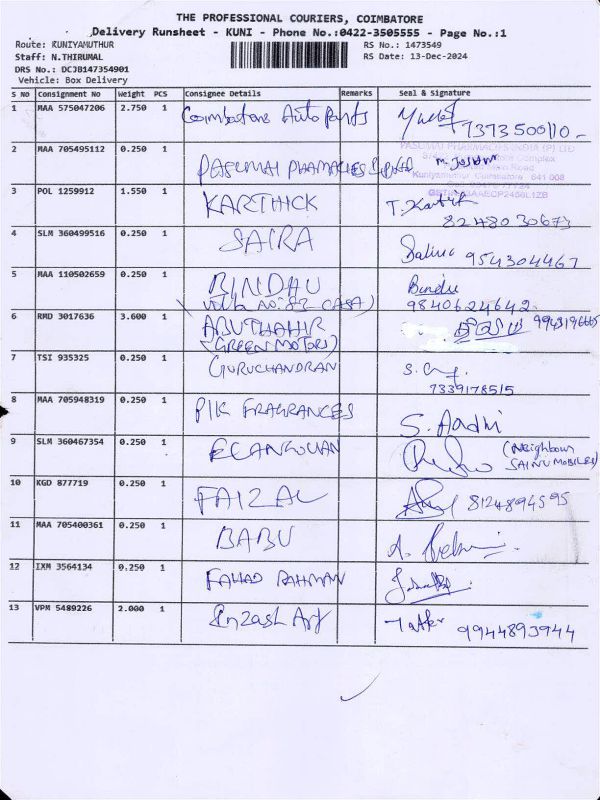 THE PROFESSIONAL COURIERS, COIMBATORE
Delivery Runsheet - KUNI - Phone No.:0422-3505555 - Page No.:1
Route: KUNIYAMUTHUR RS No.: 1473549
Staff: N.THIRUMAL RS Date: 13-Dec-2024
DRS No.: DCJB147354901
Vehicle: Box Delivery
S No Consignment No Weight PCS Consignee Details Remarks Seal & Signature
1 MAA 575047206 2.750 1 Coimbatore Auto Parts 7373500110-
2 MAA 705495112 0.250 1 PASUMAI PHAMACIES
PASUMAI PHARMACIES INDIA (P) LTD
Complex
Road
Kuniyamuthur Coimbatore 641 008
3 POL 1259912 1.550 1 KARTHICK T. Kartik
8248030673
4 SLM 360499516 0.250 1 SAIRA 954304467
5 MAA 110502659 0.250 1 BINDHU Bindu
villa No:83 CASA) 9840624642
6 RMD 3017636 3.600 1 ABUTHAHIR
(GREEN MOTORS)
7 TSI 935325 0.250 1 GURUCHANDRAN
7339178515
8 MAA 705948319 0.250 1 PIK FRAGRANCES S. Aadhi
9 SLM 360467354 0.250 1 ELANGOVAN (Neighbour
SAINU MOBILES)
10 KGD 877719 0.250 1 FAIZAL 8124894595
11 MAA 705400361 0.250 1 BABU
12 IXM 3564134 0.250 1 FAHAD RAHMAN
13 VPM 5489226 2.000 1 9944893944